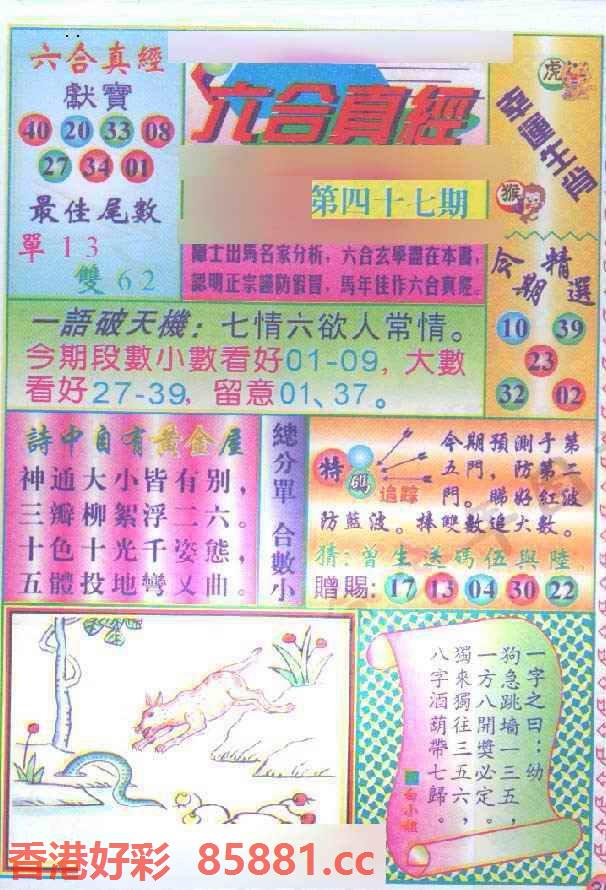 六合真經
獻寶
40 20 33 08
27 34 01
最佳尾數
單 1 3
雙 6 2
六合真經
第四十七期
隱士出馬名家分析，六合玄學盡在本書，
認明正宗謹防假冒，馬年佳作六合真經。
虎
幸運生肖
猴
今期精選
10 39
23
32 02
一語破天機：七情六欲人常情。
今期段數小數看好01-09，大數
看好27-39，留意01、37。
詩中自有黃金屋
神通大小皆有別，
三瓣柳絮浮二六。
十色十光千姿態，
五體投地彎又曲。
總分單
合數小
特碼追踪
今期預測于第
五門，防第二
門。睇好紅波
防藍波。捧雙數追大數。
猜：曾生送碼伍與陸
贈賜：17 13 04 30 22
一字之曰：幼
狗急跳墻一三五，
一方八開獎必定。
獨來獨往三五六，
八字酒葫帶七歸。
白小姐
香港好彩 85881.cc